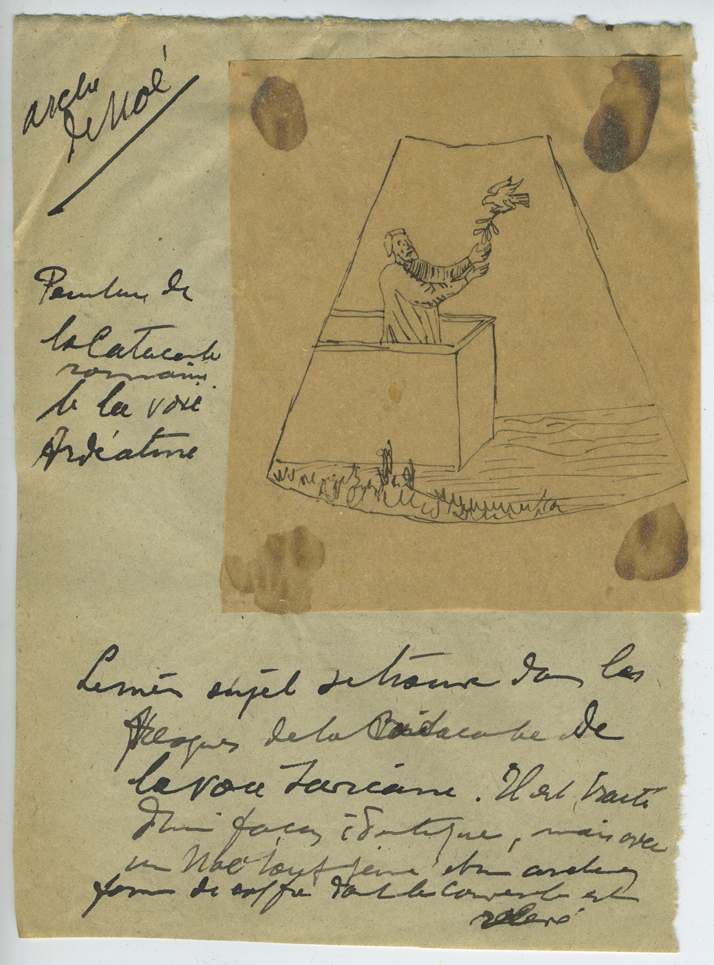 arche
de Noé
Peinture de
la Catacombe
romaine
de la voie
Ardéatine
Le même sujet se trouve dans les
fresques de la Catacombe de
la voie . Il est traité
d'une façon identique, mais avec
un Noé tout jeune et un arche en
forme de coffre dont le couvercle est
relevé